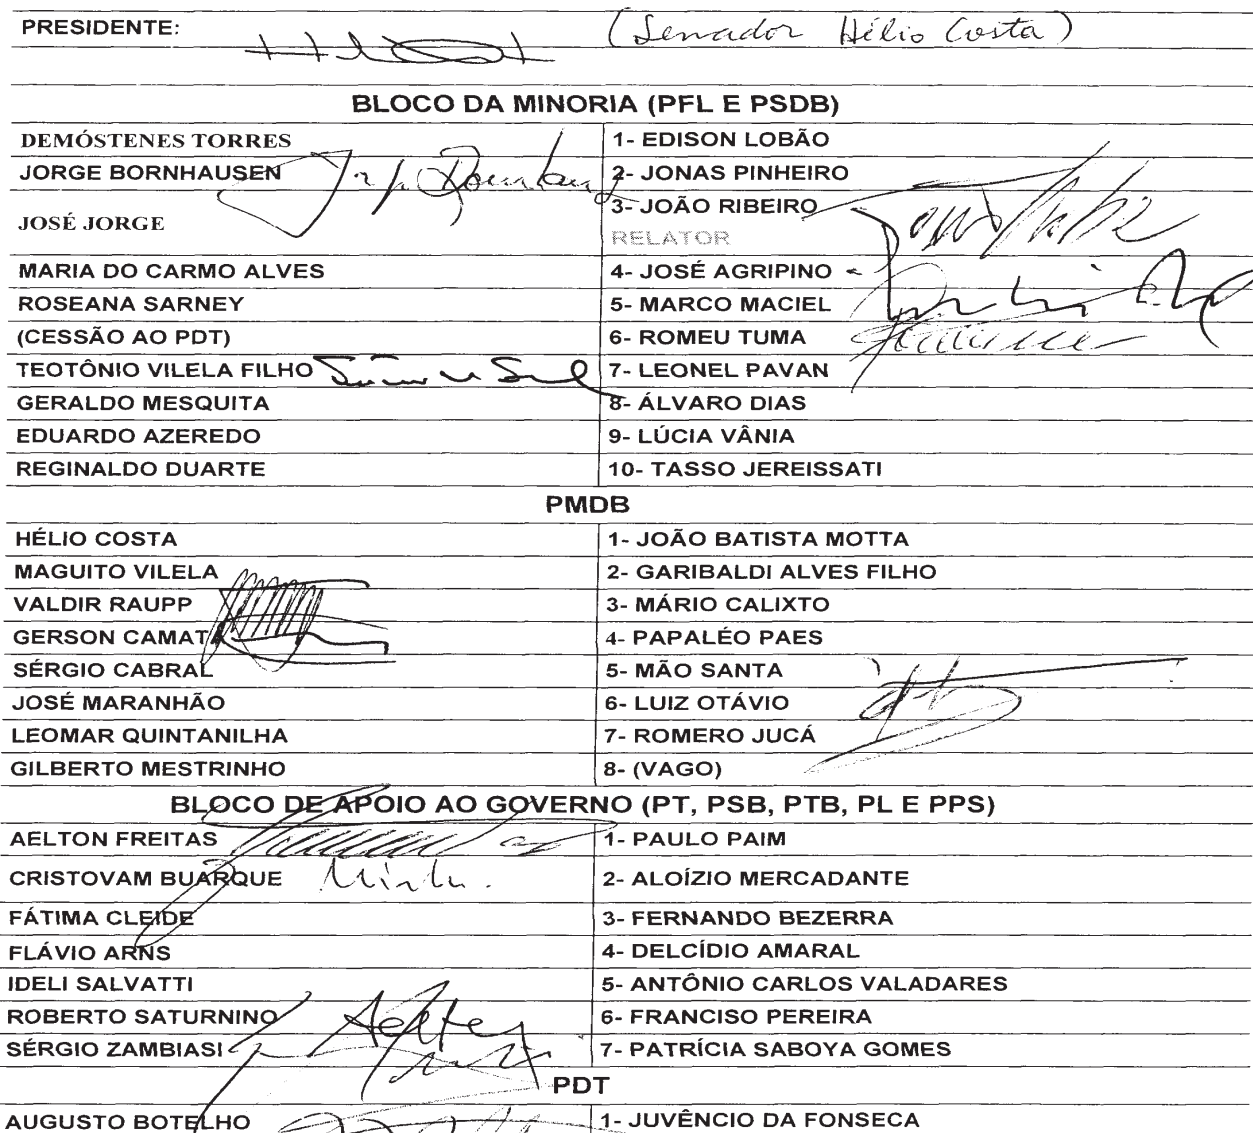 PRESIDENTE: (Senador Hélio Costa)
BLOCO DA MINORIA (PFL E PSDB)
DEMÓSTENES TORRES 1- EDISON LOBÃO
JORGE BORNHAUSEN 2- JONAS PINHEIRO
JOSÉ JORGE 3- JOÃO RIBEIRO
RELATOR
MARIA DO CARMO ALVES 4- JOSÉ AGRIPINO
ROSEANA SARNEY 5- MARCO MACIEL
(CESSÃO AO PDT) 6- ROMEU TUMA
TEOTÔNIO VILELA FILHO 7- LEONEL PAVAN
GERALDO MESQUITA 8- ÁLVARO DIAS
EDUARDO AZEREDO 9- LÚCIA VÂNIA
REGINALDO DUARTE 10- TASSO JEREISSATI
PMDB
HÉLIO COSTA 1- JOÃO BATISTA MOTTA
MAGUITO VILELA 2- GARIBALDI ALVES FILHO
VALDIR RAUPP 3- MÁRIO CALIXTO
GERSON CAMATA 4- PAPALÉO PAES
SÉRGIO CABRAL 5- MÃO SANTA
JOSÉ MARANHÃO 6- LUIZ OTÁVIO
LEOMAR QUINTANILHA 7- ROMERO JUCÁ
GILBERTO MESTRINHO 8- (VAGO)
BLOCO DE APOIO AO GOVERNO (PT, PSB, PTB, PL E PPS)
AELTON FREITAS 1- PAULO PAIM
CRISTOVAM BUARQUE 2- ALOÍZIO MERCADANTE
FÁTIMA CLEIDE 3- FERNANDO BEZERRA
FLÁVIO ARNS 4- DELCÍDIO AMARAL
IDELI SALVATTI 5- ANTÔNIO CARLOS VALADARES
ROBERTO SATURNINO 6- FRANCISO PEREIRA
SÉRGIO ZAMBIASI 7- PATRÍCIA SABOYA GOMES
PDT
AUGUSTO BOTELHO 1- JUVÊNCIO DA FONSECA